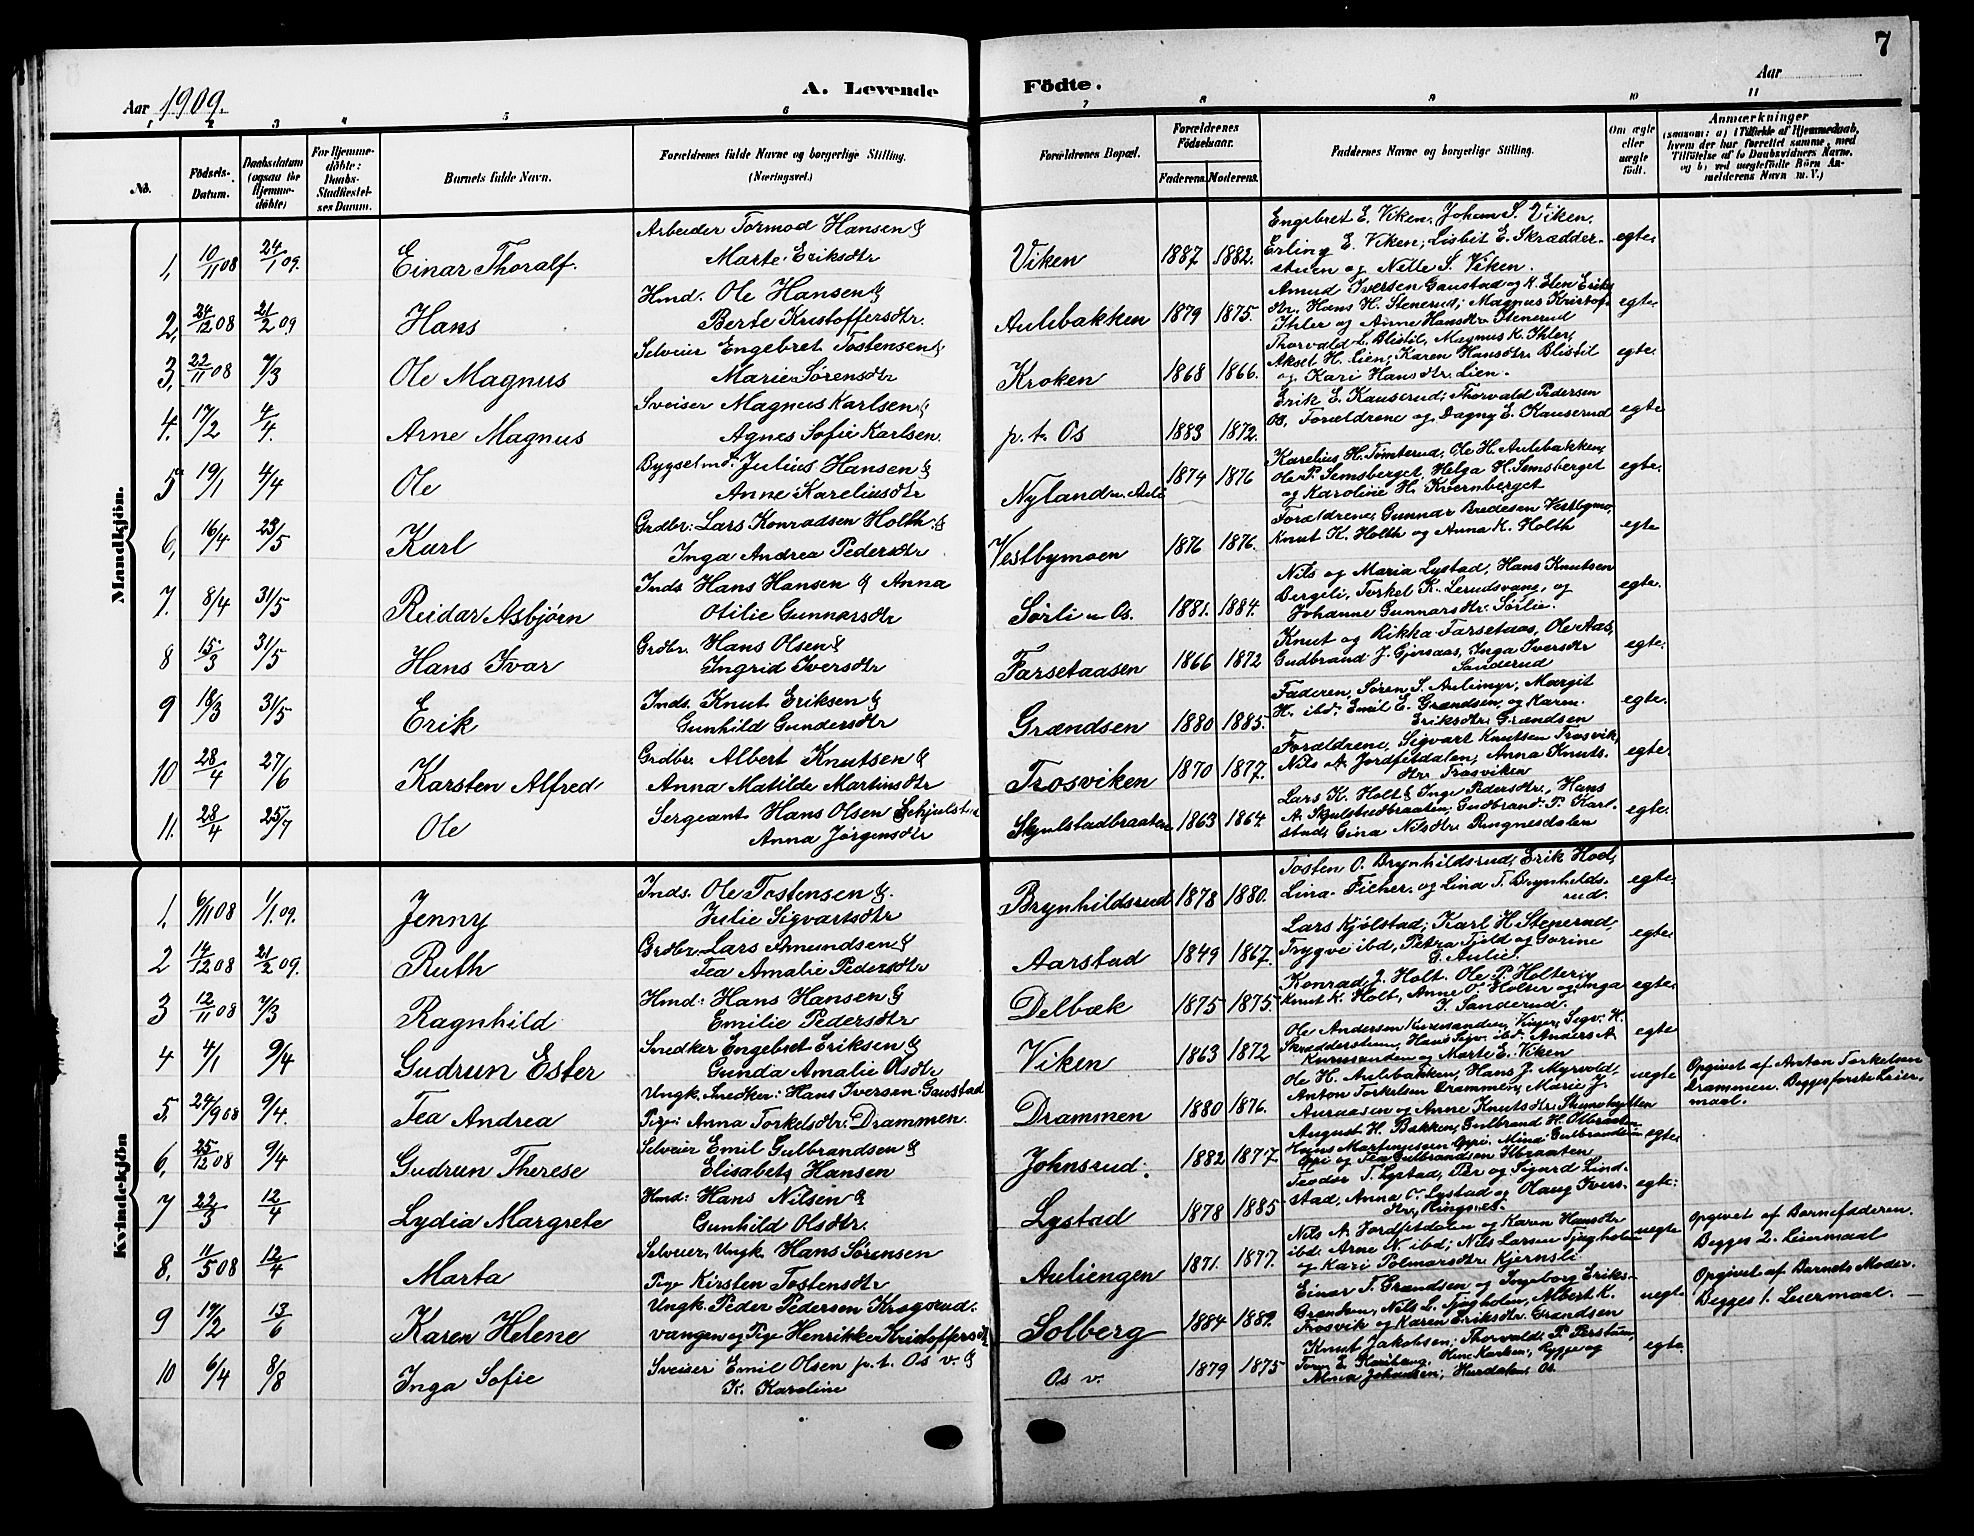 7
Aar 1909. A. Levende Födte. Aar
1 2 3 4 5 6 7 8 9 10 11
No. Födsels-Datum. Daabsdatum (ogsaa for Hjemmedöbte) For Hjemmedöbte: Daabs-Stadfæstelses Datum. Barnets fulde Navn. Forældrenes fulde Navne og borgerlige Stilling. (Næringsvei.) Forældrenes Bopæl. Forældrenes Födselsaar. Faderens. Moderens. Faddernes Navne og borgerlige Stilling. Om ægte eller uægte födt. Anmærkninger (saasom: a) i Tilfælde af Hjemmedaab, hvem der har forrettet samme, med Tilföielse af to Daabsvidners Navne, og b) ved uægtefödte Börn Anmelderens Navn m. V.)
Mandkjön.
1, 10/11 08 24/1 09. Einar Thoralf. Arbeider Tormod Hansen & Marte Eriksdtr Viken 1887 1882. Engebret E. Viken, Johan S. Viken, Erling E. Viken; Lisbit E. Skradderstuen og Nille S. Viken. egte
2, 24/12 08 21/2 09 Hans Hmd. Ole Hansen & Berte Kristoffersdtr. Aulibakken 1879 1875. Amud Iversen Gaustad og K. Elen Eriksdtr, Hans H. Stenerud; Magnus Kristof. Ihler og Anne Hansdtr Stenerud egte.
3, 22/11 08 7/3 Ole Magnus Selveier Engebret Tostensen & Marie Sørensdtr Kroken 1868 1866. Thorvald L. Blistil, Magnus K. Ihler, Aksel H. Lien, Karen Hansdtr Blistil og Kari Hansdtr. Lien. egte.
4. 17/2 4/4. Arne Magnus Sveiser Magnus Karlsen & Agnes Sofie Karlsen. p. t. Os 1883 1872. Erik E. Kauserud; Thorvald Pedersen Os, Forældrene og Dagny E. Kauserud egte
5 19/1 4/4 Ole Bygselmd. Julius Hansen & Anne Kareliusdtr Nyland u. Auli 1874 1876 Karelius H. Tomterud, Ole H. Aulibakken, Ole P. Semsberget, Helga H. Semsberget og Karoline H. Kvernberget egte.
6, 16/4 23/5 Karl Grdbr. Lars Konradsen Holth & Inga Andrea Pedersdtr Vestbymoen 1876 1876. Forældrene, Gunnar Bredesen Vestbymo, Knut K. Holth og Anna K. Holth egte
7. 8/4 31/5 Reidar Asbjørn Inds Hans Hansen & Anna Otilie Gunnarsdtr Sørli u Os. 1881. 1884. Nils og Maria Lystad, Hans Knutsen Bergeli, Torkel K. Lerudsvang, og Johanne Gunnarsdtr. Sørlie. egte.
8 15/3 31/5 Hans Ivar Grdbr. Hans Olsen & Ingrid Iversdtr Farsetaasen 1866 1872 Knut og Rikka Farsetaas, Ole Aas, Gudbrand J. Gjersaas, Inga Iversdtr Sanderud egte.
9 18/3 31/5 Erik Inds. Knut Eriksen & Gunhild Gundersdtr Grændsen 1880 1885. Faderen, Søren S. Aulimyr, Margit H. ibd; Emil E. Grændsen og Karen Eriksdtr. Grændsen egte.
10 28/4 27/6 Karsten Alfred Grdbr. Albert Knutsen & Anna Matilde Martinsdtr Trosviken 1870 1877. Forældrene, Sigvart Knutsen Trosvik, Nils A. Jordfjtdalen, Anna Knutsdtr Trosviken egte.
11. 28/4 25/7 Ole Sergeant Hans Olsen Schjulstad Anna Jørgensdtr Skjulstadbraaten 1863 1864. Lars K. Holt & Inge Pedersdtr., Hans A. Skjulstadbraaten, Gudbrand P. Karlstad, Gina Nilsdtr. Ringnesdalen egte.
Kvindekjön
1, 6/11 08 1/1 09. Jenny Inds. Ole Tostensen & Julie Sigvartsdtr Brynhildsrud 1878 1880. Tosten O. Brynhildsrud, Erik Hoel, Lina Ficher og Lina T. Brynhildsrud. egte.
2 14/12 08 21/2 09. Ruth Grdbr. Lars Amundsen & Tea Amalie Pedersdtr Aarstad 1849 1867. Lars Kjølstad; Karl H. Stenerud, Trygve ibd, Petra Fjeld og Gorine G. Aulie. egte.
3 12/11 08 7/3 Ragnhild Hmd: Hans Hansen & Emilie Pedersdtr Delbæk 1875 1875 Konrad J. Holt. Ole P. Holter, Knut K. Holt, Anne O. Holter og Inga I. Sanderud. egte.
4 4/1 9/4 Gudrun Ester Snedker Engebret Eriksen & Gunda Amalie Olsdtr Viken 1863 1872 Ole Andersen, Sigv. H. Skradderstuen, Hans Sigv. ibd. Anders A og Marte E. Viken egte
5. 24/9 08 9/4. Tea Andrea Ungk. Snedker: Hans Iversen Gaustad Pige Anna Torkelsdtr. Drammen. Drammen 1880 1876. Ole H. Aulibakken, Hans J. Myrvold, Anton Torkelsen Drammen, Marie J. Auraasen og Anne Knutsdtr. uegte Opgivet af Anton Torkelsen Drammen. Begges første Leiermaal.
6, 25/12 08 9/4 Gudrun Therese Selveier Emil Gulbrandsen & Elisabet Hansen Johnsrud. 1882 1877 August H. Bakken, Gulbrand H. Olbraaten, Hans Martinusen, Mina Gulbrandsen og Tea Gulbrandsen egte
7 22/3 12/4 Lydia Margrete Hmd: Hans Nilsen & Gunhild Olsdtr. Lystad 1878 1885 Teodor T. Lystad, Per og Sigurd Lindstad, Anna O. Lystad og Olaug Iversdtr, Ringnes. egte.
8. 11/5 08 12/4 Marta Selveier, Ungk. Hans Sørensen Pige Kirsten Tostensdtr Auliengen 1871. 1877. Nils A. Jordfjtdalen og Karen Hansdtr ibd. Arne N. ibd; Nils Larsen Tjugholm og Kari Polmarsdtr. Kjernsli uegte Opgivet af Barnefaderen. Begges 2. Leiermaal
9 17/2 13/6 Karen Helene Ungk. Peder Pedersen Krogsrudvangen og Pige Henrikke Kristoffersdtr Solberg 1884 1882. Einar T. Grændsen og Ingeborg Eriks. Grændsen, Nils L. Tjugholm, Albert K. Trosvik og Karen Eriksdtr. Grændsen uegte Opgivet af Barnets Moder. Begges 1. Leiermaal.
10 6/4 8/8 Inga Sofie Sveiser Emil Olsen p. t. Os v. & K. Karoline Os v. 1879 1875 Knut Jakobsen; Thorvald P. og Alma Johansen, Hurdalen, Os. egte.